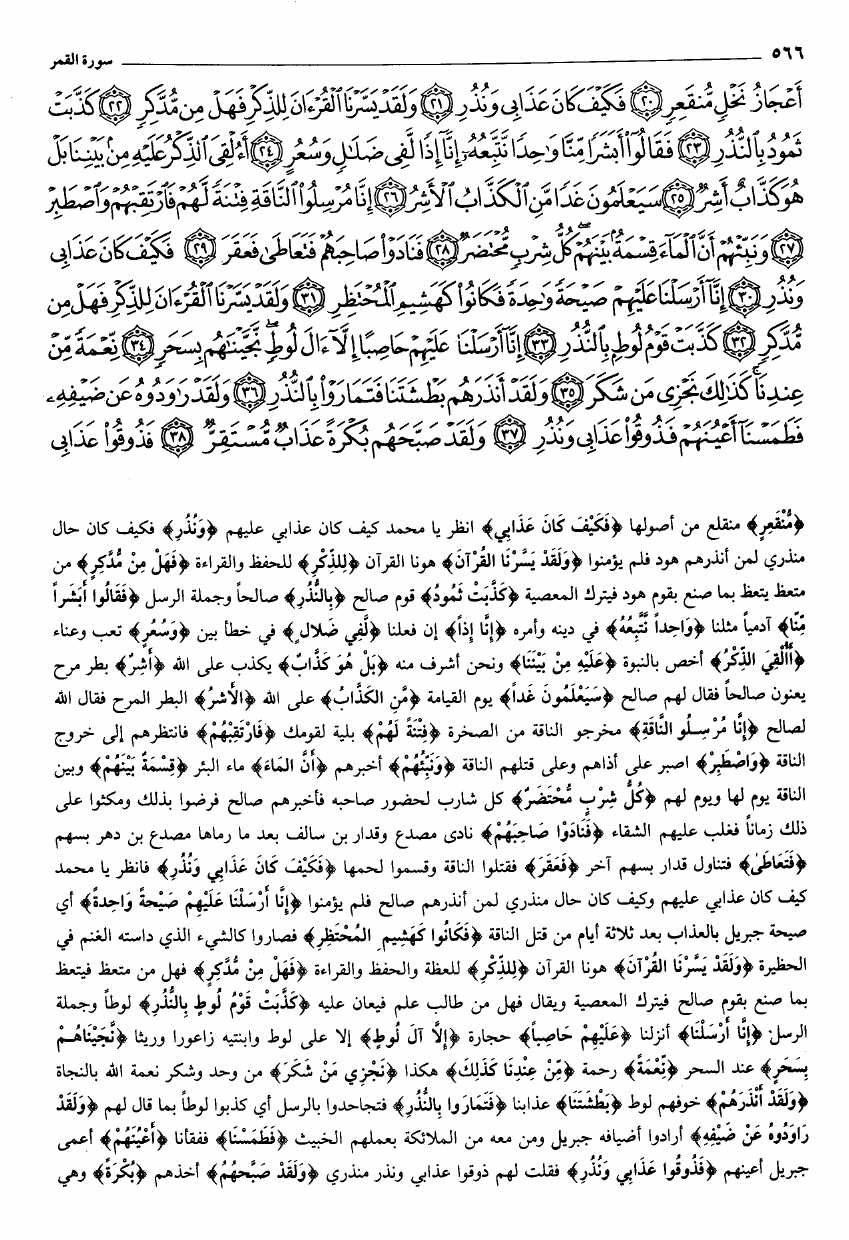 ٥٦٦ سورة القمر
أَعْجَازُ نَخْلٍ مُّنقَعِرٍ ﴿٢٠﴾ فَكَيْفَ كَانَ عَذَابِى وَنُذُرِ ﴿٢١﴾ وَلَقَدْ يَسَّرْنَا ٱلْقُرْءَانَ لِلذِّكْرِ فَهَلْ مِن مُّدَّكِرٍ ﴿٢٢﴾ كَذَّبَتْ
ثَمُودُ بِٱلنُّذُرِ ﴿٢٣﴾ فَقَالُوٓا۟ أَبَشَرًا مِّنَّا وَٰحِدًا نَّتَّبِعُهُۥٓ إِنَّآ إِذًا لَّفِى ضَلَٰلٍ وَسُعُرٍ ﴿٢٤﴾ أَءُلْقِىَ ٱلذِّكْرُ عَلَيْهِ مِنۢ بَيْنِنَا بَلْ
هُوَ كَذَّابٌ أَشِرٌ ﴿٢٥﴾ سَيَعْلَمُونَ غَدًا مَّنِ ٱلْكَذَّابُ ٱلْأَشِرُ ﴿٢٦﴾ إِنَّا مُرْسِلُوا۟ ٱلنَّاقَةِ فِتْنَةً لَّهُمْ فَٱرْتَقِبْهُمْ وَٱصْطَبِرْ
﴿٢٧﴾ وَنَبِّئْهُمْ أَنَّ ٱلْمَآءَ قِسْمَةٌۢ بَيْنَهُمْ ۖ كُلُّ شِرْبٍ مُّحْتَضَرٌ ﴿٢٨﴾ فَنَادَوْا۟ صَاحِبَهُمْ فَتَعَاطَىٰ فَعَقَرَ ﴿٢٩﴾ فَكَيْفَ كَانَ عَذَابِى
وَنُذُرِ ﴿٣٠﴾ إِنَّآ أَرْسَلْنَا عَلَيْهِمْ صَيْحَةً وَٰحِدَةً فَكَانُوا۟ كَهَشِيمِ ٱلْمُحْتَظِرِ ﴿٣١﴾ وَلَقَدْ يَسَّرْنَا ٱلْقُرْءَانَ لِلذِّكْرِ فَهَلْ مِن
مُّدَّكِرٍ ﴿٣٢﴾ كَذَّبَتْ قَوْمُ لُوطٍۭ بِٱلنُّذُرِ ﴿٣٣﴾ إِنَّآ أَرْسَلْنَا عَلَيْهِمْ حَاصِبًا إِلَّآ ءَالَ لُوطٍ ۖ نَّجَّيْنَٰهُم بِسَحَرٍ ﴿٣٤﴾ نِّعْمَةً مِّنْ
عِندِنَا ۚ كَذَٰلِكَ نَجْزِى مَن شَكَرَ ﴿٣٥﴾ وَلَقَدْ أَنذَرَهُم بَطْشَتَنَا فَتَمَارَوْا۟ بِٱلنُّذُرِ ﴿٣٦﴾ وَلَقَدْ رَٰوَدُوهُ عَن ضَيْفِهِۦ
فَطَمَسْنَآ أَعْيُنَهُمْ فَذُوقُوا۟ عَذَابِى وَنُذُرِ ﴿٣٧﴾ وَلَقَدْ صَبَّحَهُم بُكْرَةً عَذَابٌ مُّسْتَقِرٌّ ﴿٣٨﴾ فَذُوقُوا۟ عَذَابِى
﴿مُّنْقَعِرٍ﴾ منقلع من أصولها ﴿فَكَيْفَ كَانَ عَذَابِي﴾ انظر يا محمد كيف كان عذابي عليهم ﴿وَنُذُرِ﴾ فكيف كان حال
منذري لمن أنذرهم هود فلم يؤمنوا ﴿وَلَقَدْ يَسَّرْنَا القُرْآنَ﴾ هونا القرآن ﴿لِلذِّكْرِ﴾ للحفظ والقراءة ﴿فَهَلْ مِنْ مُّدَّكِرٍ﴾ من
متعظ يتعظ بما صنع بقوم هود فيترك المعصية ﴿كَذَّبَتْ ثَمُودُ﴾ قوم صالح ﴿بِالنُّذُرِ﴾ صالحاً وجملة الرسل ﴿فَقَالُوا أَبَشَراً
مِّنَّا﴾ آدمياً مثلنا ﴿وَاحِداً نَّتَّبِعُهُ﴾ في دينه وأمره ﴿إِنَّا إِذاً﴾ إن فعلنا ﴿لَّفِي ضَلَالٍ﴾ في خطأ بين ﴿وَسُعُرٍ﴾ تعب وعناء
﴿أَأُلْقِيَ الذِّكْرُ﴾ أخص بالنبوة ﴿عَلَيْهِ مِنْ بَيْنِنَا﴾ ونحن أشرف منه ﴿بَلْ هُوَ كَذَّابٌ﴾ يكذب على الله ﴿أَشِرٌ﴾ بطر مرح
يعنون صالحاً فقال لهم صالح ﴿سَيَعْلَمُونَ غَداً﴾ يوم القيامة ﴿مَّنِ الكَذَّابُ﴾ على الله ﴿الأَشرُ﴾ البطر المرح فقال الله
لصالح ﴿إِنَّا مُرْسِلُو النَّاقَةِ﴾ مخرجو الناقة من الصخرة ﴿فِتْنَةً لَهُمْ﴾ بلية لقومك ﴿فَارْتَقِبْهُمْ﴾ فانتظرهم إلى خروج
الناقة ﴿وَاصْطَبِرْ﴾ اصبر على أذاهم وعلى قتلهم الناقة ﴿وَنَبِّئْهُمْ﴾ أخبرهم ﴿أَنَّ المَاءَ﴾ ماء البئر ﴿قِسْمَةٌ بَيْنَهُمْ﴾ وبين
الناقة يوم لها ويوم لهم ﴿كُلُّ شِرْبٍ مُّحْتَضَرٌ﴾ كل شارب لحضور صاحبه فأخبرهم صالح فرضوا بذلك ومكثوا على
ذلك زماناً فغلب عليهم الشقاء ﴿فَنَادَوْا صَاحِبَهُمْ﴾ نادى مصدع وقدار بن سالف بعد ما رماها مصدع بن دهر بسهم
﴿فَتَعَاطَىٰ﴾ فتناول قدار بسهم آخر ﴿فَعَقَرَ﴾ فقتلوا الناقة وقسموا لحمها ﴿فَكَيْفَ كَانَ عَذَابِي وَنُذُرِ﴾ فانظر يا محمد
كيف كان عذابي عليهم وكيف كان حال منذري لمن أنذرهم صالح فلم يؤمنوا ﴿إِنَّا أَرْسَلْنَا عَلَيْهِمْ صَيْحةً وَاحِدةً﴾ أي
صيحة جبريل بالعذاب بعد ثلاثة أيام من قتل الناقة ﴿فَكَانُوا كَهَشِيمِ المُحْتَظِرِ﴾ فصاروا كالشيء الذي داسته الغنم في
الحظيرة ﴿وَلَقَدْ يَسَّرْنَا القُرْآنَ﴾ هونا القرآن ﴿لِلذِّكْرِ﴾ للعظة والحفظ والقراءة ﴿فَهَلْ مِنْ مُّدَّكِرٍ﴾ فهل من متعظ فيتعظ
بما صنع بقوم صالح فيترك المعصية ويقال فهل من طالب علم فيعان عليه ﴿كَذَّبَتْ قَوْمُ لُوطٍ بِالنُّذُرِ﴾ لوطاً وجملة
الرسل ﴿إِنَّا أَرْسَلْنَا﴾ أنزلنا ﴿عَلَيْهِمْ حَاصِباً﴾ حجارة ﴿إِلَّا آلَ لُوطٍ﴾ إلا على لوط وابنتيه زاعورا وريثا ﴿نَّجَيْنَاهُمْ
بِسَحَرٍ﴾ عند السحر ﴿نِّعْمَةً﴾ رحمة ﴿مِّنْ عِنْدِنَا كَذَلِكَ﴾ هكذا ﴿نَجْزِي مَنْ شَكَرَ﴾ من وحد وشكر نعمة الله بالنجاة
﴿وَلَقَدْ أَنْذَرَهُمْ﴾ خوفهم لوط ﴿بَطْشَتَنَا﴾ عذابنا ﴿فَتَمَارَوا بِالنُّذُرِ﴾ فتجاحدوا بالرسل أي كذبوا لوطاً بما قال لهم ﴿وَلَقَدْ
رَاوَدُوهُ عَنْ ضَيْفِهِ﴾ أرادوا أضيافه جبريل ومن معه من الملائكة بعملهم الخبيث ﴿فَطَمَسْنَا﴾ ففقأنا ﴿أَعْيُنَهُمْ﴾ أعمى
جبريل أعينهم ﴿فَذُوقُوا عَذَابِي وَنُذُرِ﴾ فقلت لهم ذوقوا عذابي ونذر منذري ﴿وَلَقَدْ صَبَّحَهُمْ﴾ أخذهم ﴿بُكْرَةً﴾ وهي